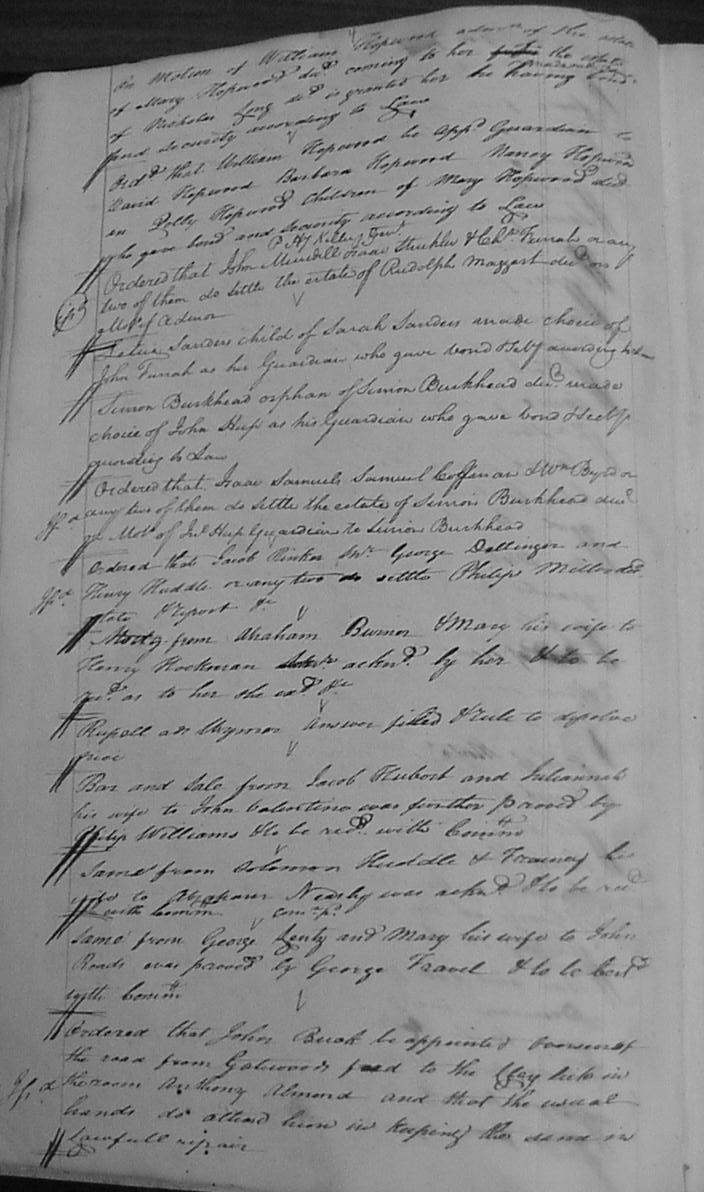 On Motion of William Hopwood of the estate
of Mary Hopwood decd coming to her the estate
of Nicholas Long decd is granted her he having
and security according to Law
Ordd that William Hopwood be appd Guardian to
David Hopwood Barbara Hopwood Nancy Hopwood
Polly Hopwood Children of Mary Hopwood decd
who gave bond and security according to Law
P Hy Keller, Genl
Ordered that John Isaac Strickler & Chs Furrah or any
two of them do settle the estate of Rudolph Maggart decd on
Mo of Admor
Sanders child of Sarah Sanders made choice of
John Furrah as her Guardian who gave bond & Secy according to Law
Simon Burkhead orphan of Simon Burkhead decd made
choice of John Hup as his Guardian who gave bond & Secy
according to Law
Ordered that Isaac Samuels Samuel Coffman & Wm Byrd or
any two of them do settle the estate of Simon Burkhead decd
Moto of Jno Hup Guardian to Simon Burkhead
Ordered that Jacob Rinker Snr George Dellinger and
Henry Huddle or any two do settle Philip Millers
& report &c
from Abraham & Mary his wife to
Henry Hockman acknd by her & to be
as to her she &c
Answer filed & rule to
Bar and Sale from Jacob Hubert and Juliannah
his wife to John Valentine was further proved by
Philip Williams & to be recd with Comm
Same from Solomon Huddle & his
wife to Abraham was acknd & to be recd
with Comm
same from George and Mary his wife to John
Roads was proved by George Travel & to be
with Comm
Ordered that John be appointed Overseer of
the road from Gatewoods ford to the Clay lick in
the room Anthony Almond and that the usual
hands do attend him in keeping the same in
Lawfull repair